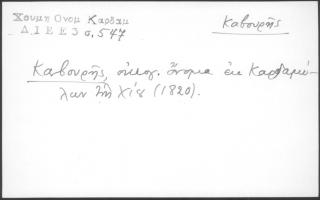 Χουμη Ονομ Καρδαμ
Δ Ι Ε Ε 3 σ, 547
Καβουρής
Καβουρής, οικογ. όνομα εκ Καρδαμύ-
λων της Χίου (1820).